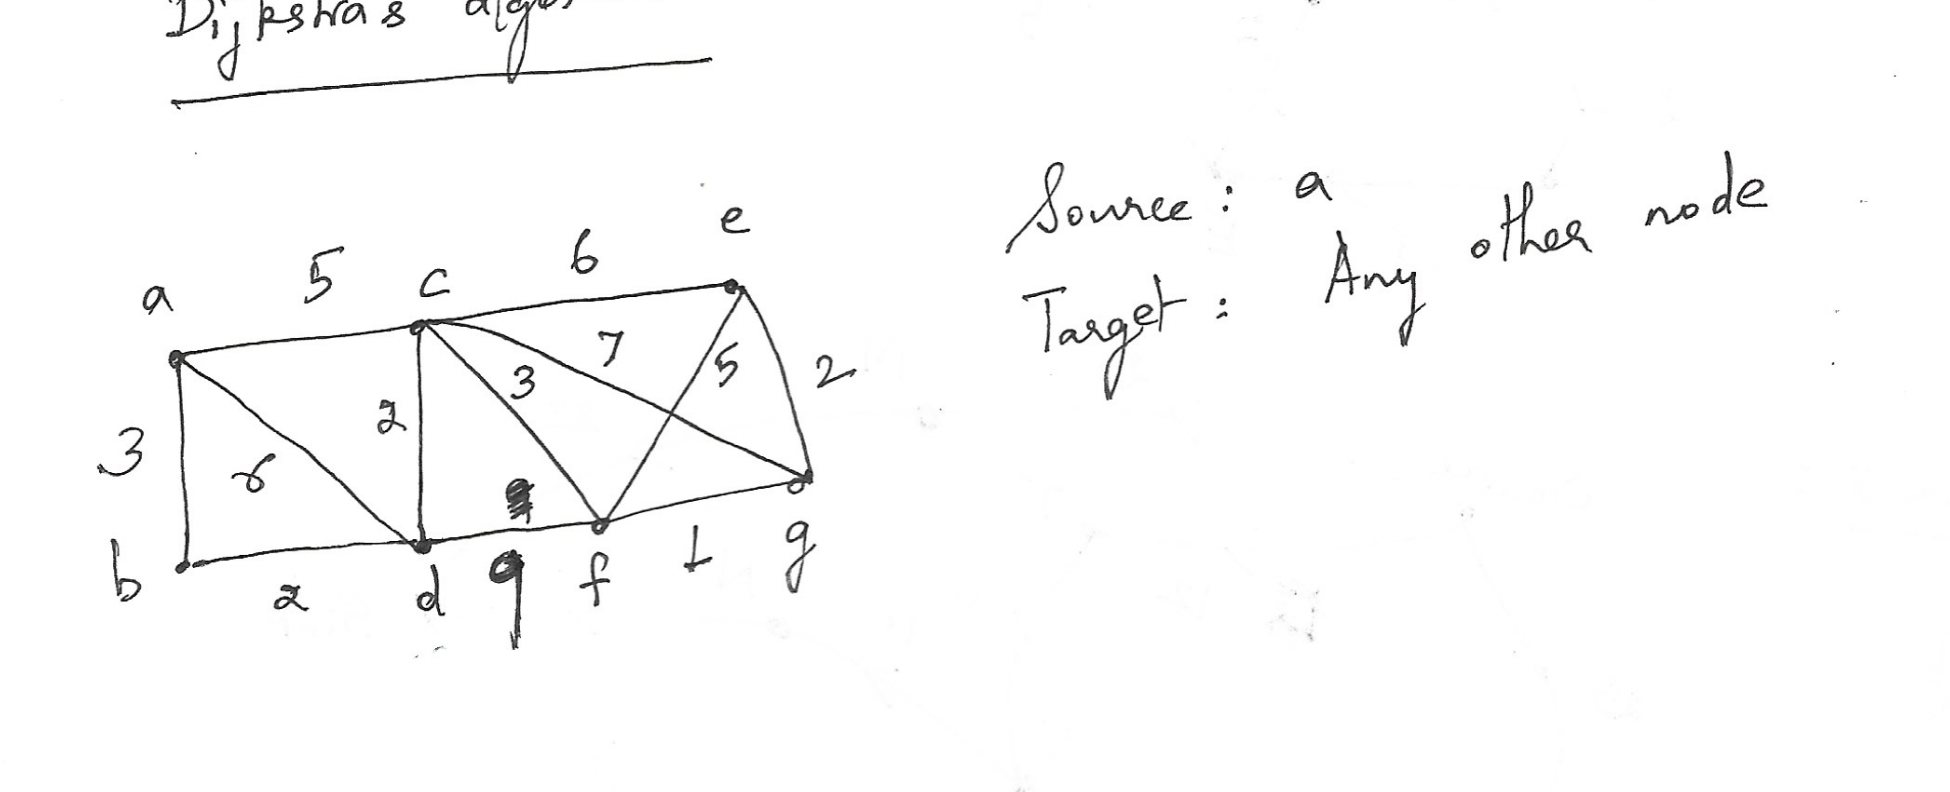 Dijkstra's
Source : a
Target : Any other node
e
5 c 6
a
7
3 5 2
2
3
8
b 2 d 9 f 1 g